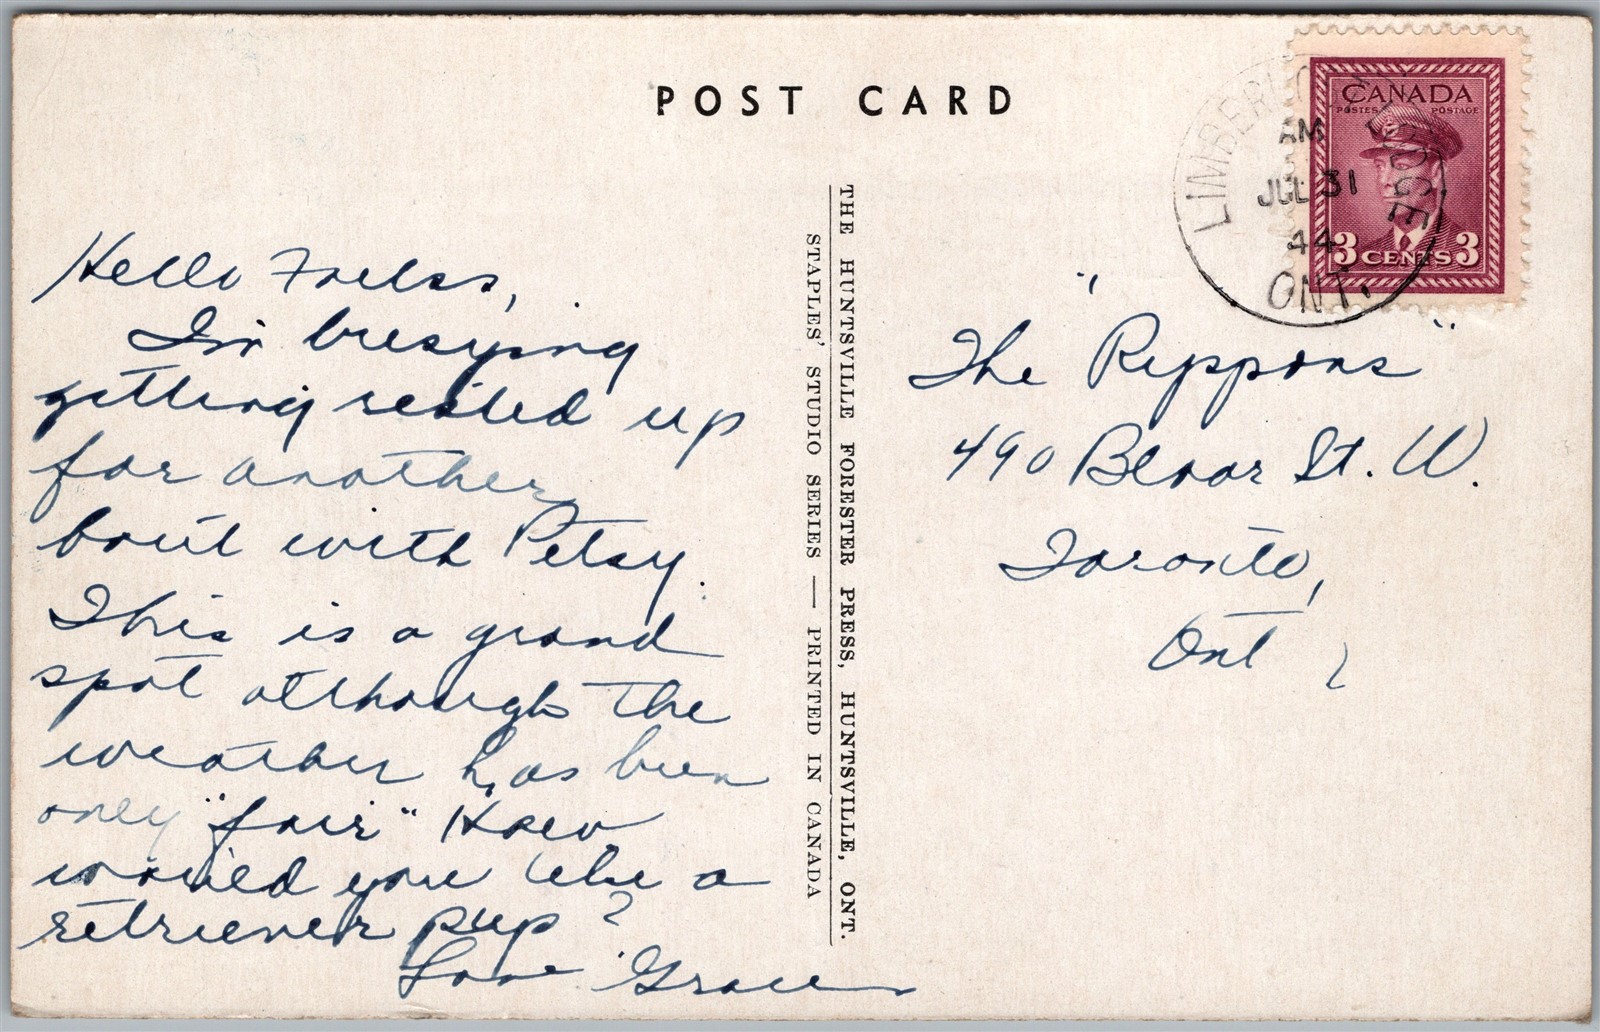 POST CARD
CANADA
POSTES POSTAGE
3 CENTS 3
LIMBERLOST LODGE
AM
JUL 31
44
ONT.
Hello Folkss,
I'm busying
getting rested up
for another
bout with Petsy.
This is a grand
spot although the
weather has been
only "fair" How
would you like a
retriever pup?
Love Grace
THE HUNTSVILLE FORESTER PRESS, HUNTSVILLE, ONT.
STAPLES' STUDIO SERIES — PRINTED IN CANADA
"The Rippons"
490 Bloor St. W.
Toronto,
Ont